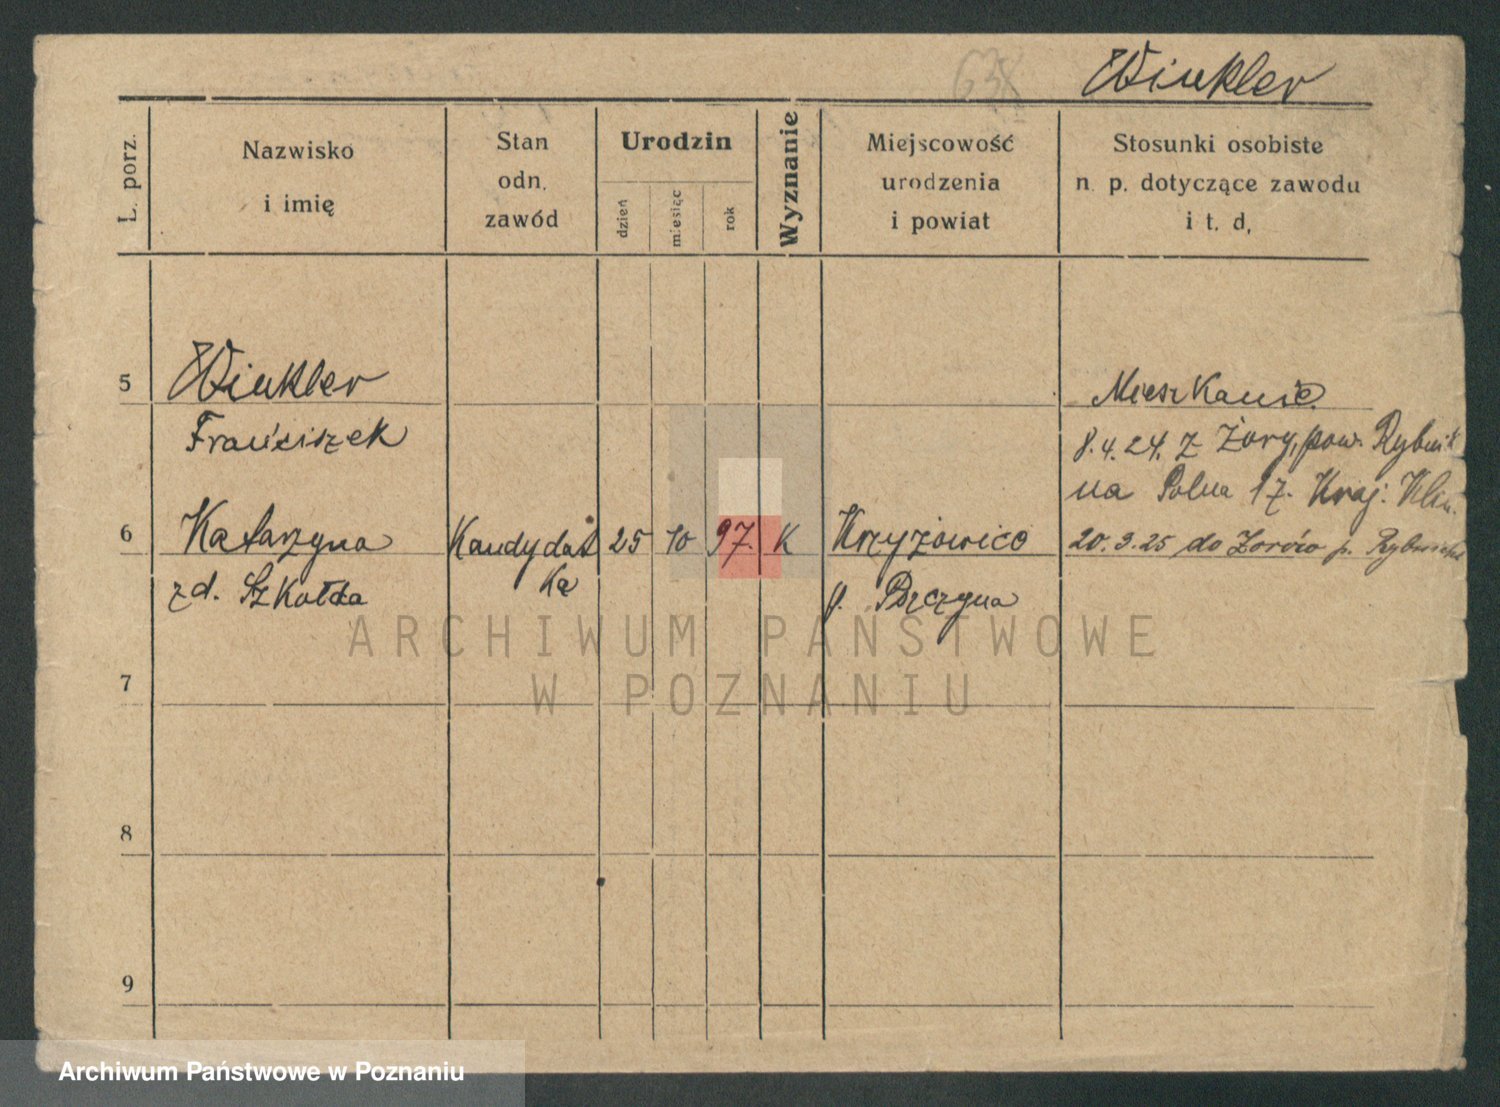 Winkler
L. porz.
Nazwisko
i imię
Stan
odn.
zawód
Urodzin
dzień
miesiąc
rok
Wyznanie
Miejscowość
urodzenia
i powiat
Stosunki osobiste
n. p. dotyczące zawodu
i t. d.
5
Winkler
Franciszek
Mieszkanie
8.4.24. z Żory, pow. Rybnik
na Polna 17.
6
Katarzyna
zd. Szkołda
Kandydat
ka
25
10
97.
K
Krzyżowice
p. Pszczyna
20.3.25 do Żorów p.
7
8
9
ARCHIWUM PAŃSTWOWE
W POZNANIU
Archiwum Państwowe w Poznaniu